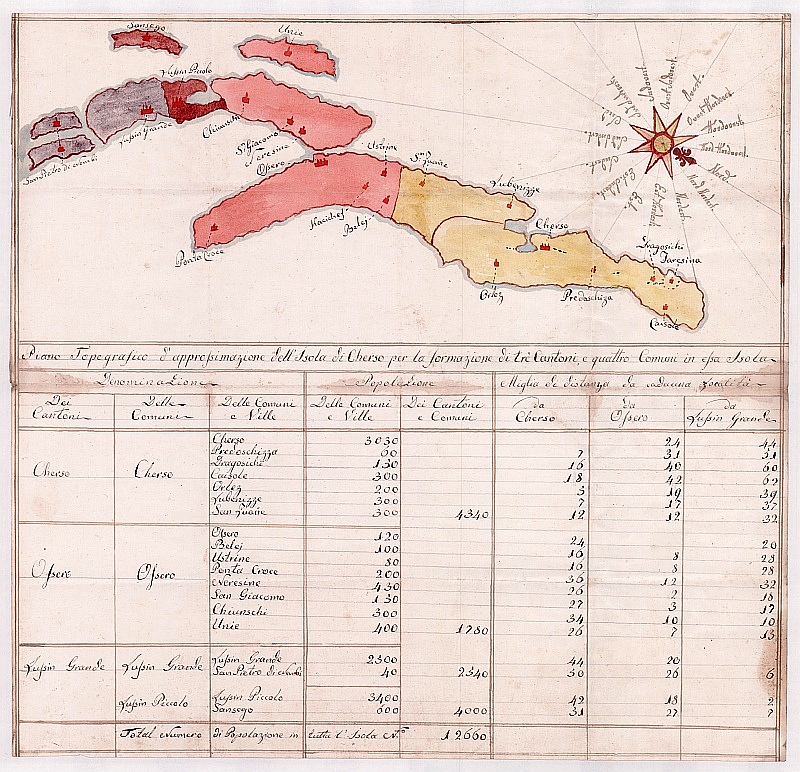 Sansego
Unie
Lussin Picolo
Lussin Grande
Chiunschi
San Pietro di Nembi
S. Giacomo
Neresine
Ossero
Ustrine
S.n Zuane
Lubenizze
Hacichej
Belej
Ponta Croce
Cherso
Orlez
Predoschiza
Dragosichi
Faresina
Caisole
Ovest
Nord
Est
Sud
Piano Topografico d'approssimazione dell'Isola di Cherso per la formazione di tre Cantoni, e quattro Comuni in essa Isola
Denominazione Popolazione Miglia di distanza da cadauna località
Dei Cantoni Delle Comuni Delle Comuni e Ville Delle Comuni e Ville Dei Cantoni e Comuni da Cherso da Ossero da Lussin Grande
Cherso Cherso Cherso 3030 24 44
Predoschizza 60 7 31 51
Dragosichi 150 16 40 60
Caisole 300 18 42 62
Orlez 200 5 19 39
Lubenizze 300 7 17 37
San Zuane 300 4340 12 12 32
Ossero Ossero Ossero 120 24 20
Belej 100 16 8 28
Ustrine 80 16 8 28
Ponta Croce 200 36 12 32
Neresine 450 26 2 18
San Giacomo 130 27 3 17
Chiunschi 300 34 10 10
Unie 400 1780 26 7 13
Lussin Grande Lussin Grande Lussin Grande 2500 44 20
San Pietro di Nembi 40 2540 50 26 6
Lussin Piccolo Lussin Piccolo 3400 42 18 2
Sansego 600 4000 31 27 7
Total Numero di Popolazione in tutta l'Isola N.o 12660